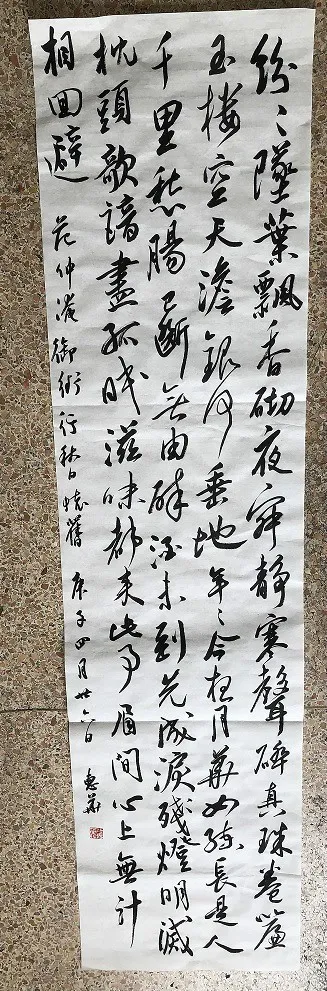 紛〻墜葉飄香砌夜寂靜寒聲碎真珠卷簾
玉楼空天澹銀河垂地年〻今夜月華如練長是人
千里愁腸已斷無由醉酒未到先成淚殘燈明滅
枕頭欹諳盡孤眠滋味都来此事眉間心上無計
相回避 范仲淹御街行秋日懷舊 庚子四月廿六日 惠